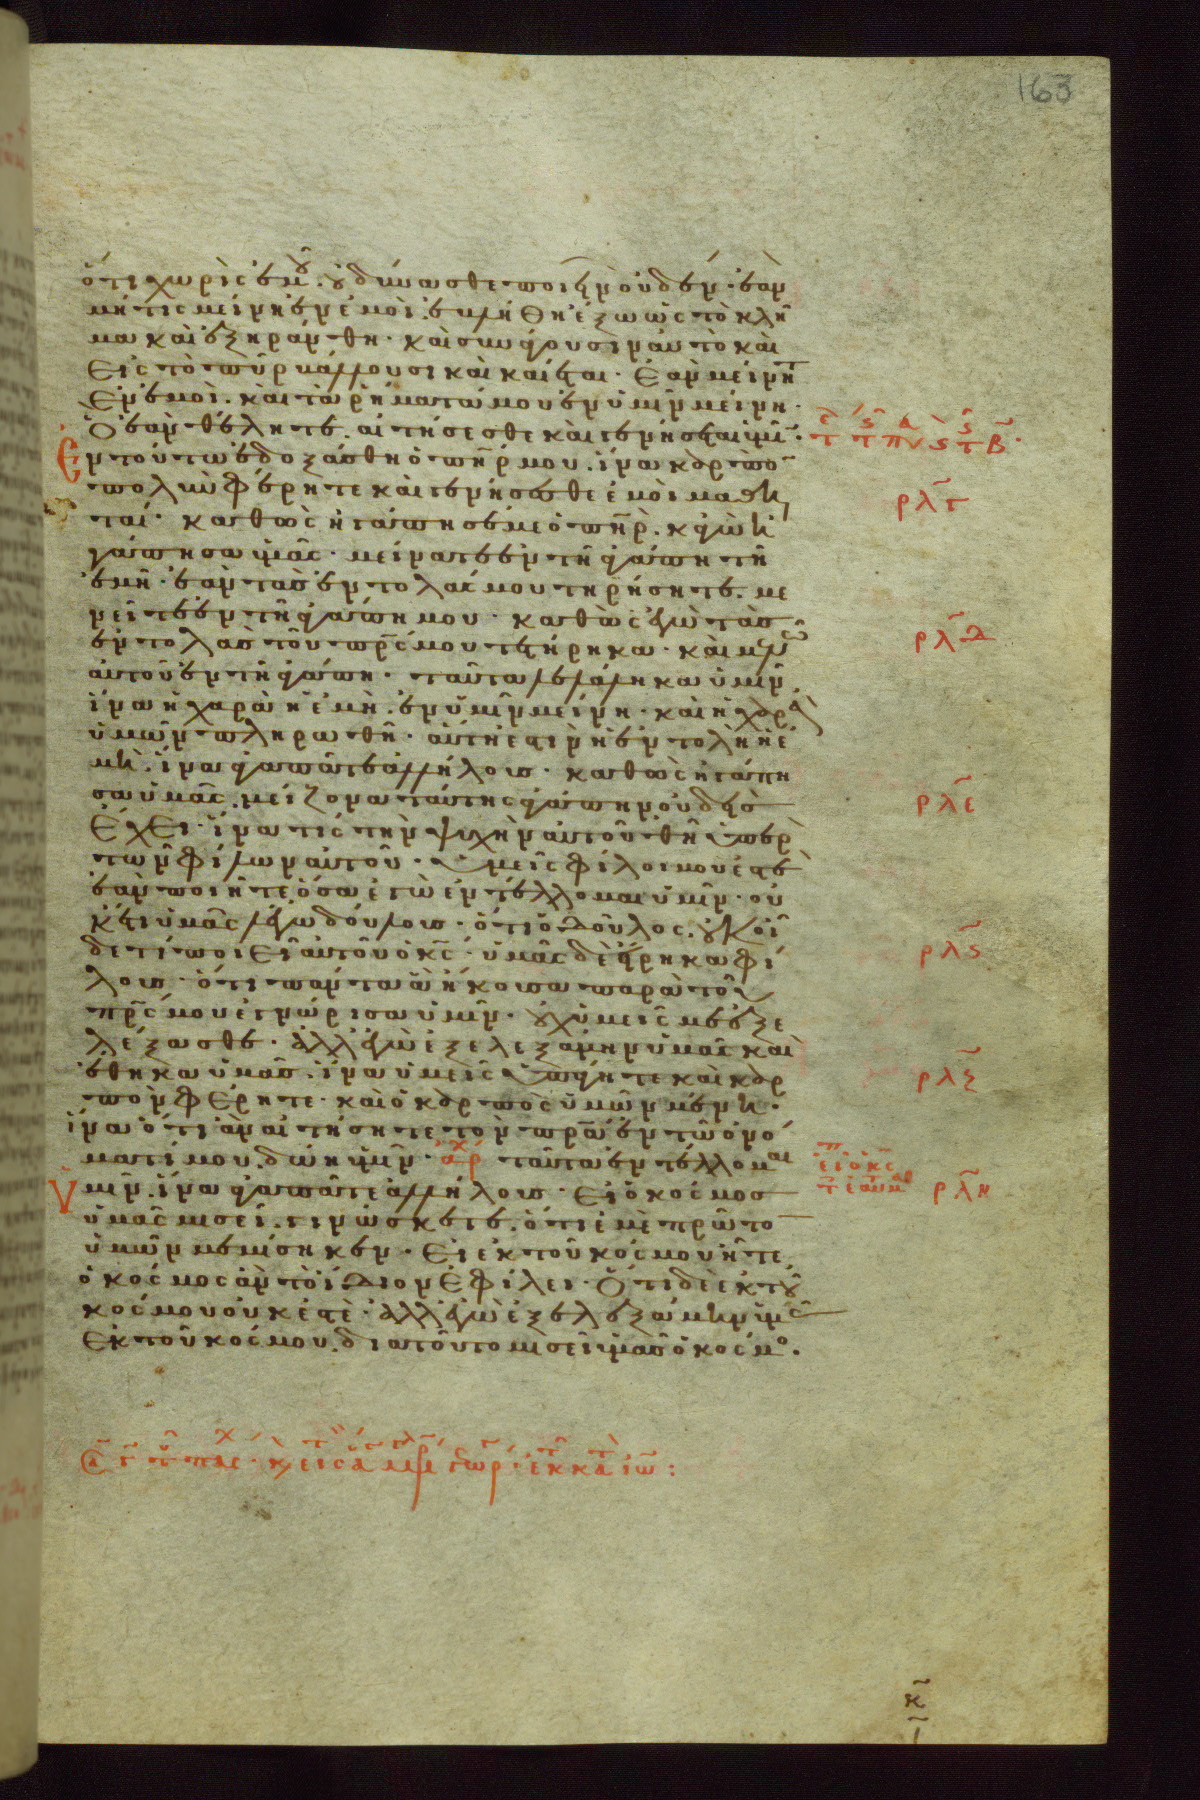 163
ὅτι χωρὶς ἐμοῦ οὐ δύνασθε ποιεῖν οὐδέν· ἐὰν
μή τις μείνη ἐν ἐμοὶ. ἐβλήθη ἔξω ὡς τὸ κλῆ
μα καὶ ἐξηράνθη· καὶ συνάγουσιν αὐτὸ καὶ
εἰς τὸ πῦρ βάλλουσι καὶ καίεται· ἐὰν μείνητ
ἐν ἐμοὶ. καὶ τὰ ῥήματά μου ἐν ὑμῖν μείνη·
ὃ ἐὰν θέλητε. αἰτήσεσθε καὶ γενήσεται ὑμῖ·
Ἐν τούτω ἐδοξάσθη ὁ πη̅ρ μου. ἵνα καρπὸ
πολὺν φέρητε καὶ γενήσεσθε ἐμοὶ μαθη
ταί· καθὼς ἠγάπησέ με ὁ πη̅ρ. κἀγὼ ἠ
γάπησα ὑμᾶς· μείνατε ἐν τῆ ἀγάπη τῆ
ἐμῆ· ἐὰν τὰς ἐντολάς μου τηρήσητε. με
νεῖτε ἐν τῆ ἀγάπη μου· καθὼς ἐγὼ τὰς
ἐντολὰς τοῦ πρ̅ς μου τετήρηκα· καὶ μένω
αὐτοῦ ἐν τῆ ἀγάπη· ταῦτα λελάληκα ὑμῖν.
ἵνα ἡ χαρὰ ἡ ἐμὴ. ἐν ὑμῖν μείνη· καὶ ἡ χαρὰ
ὑμῶν πληρωθῆ· αὕτη ἐστὶν ἡ ἐντολὴ ἡ ἐ
μὴ. ἵνα ἀγαπᾶτε ἀλλήλους· καθὼς ἠγάπη
σα ὑμᾶς. μείζονα ταύτης ἀγάπην οὐδεὶς
ἔχει· ἵνα τὶς τὴν ψυχὴν αὐτοῦ θῆ ὑπὲρ
τῶν φίλων αὐτοῦ· ὑμεῖς φίλοι μου ἐστὲ
ἐὰν ποιῆτε ὅσα ἐγὼ ἐντέλλομαι ὑμῖν· οὐ
κέτι ὑμᾶς λέγω δούλους· ὅτι ὁ δοῦλος. οὐκ οἶ
δε τί ποιεῖ αὐτοῦ ὁ κς̅· ὑμᾶς δὲ εἴρηκα φί
λους· ὅτι πάντα ἃ ἤκουσα παρὰ τοῦ
πρ̅ς μου ἐγνώρισα ὑμῖν· οὐχ ὑμεῖς με ἐξε
λέξασθε· ἀλλ' ἐγὼ ἐξελεξάμην ὑμᾶς καὶ
ἔθηκα ὑμᾶς. ἵνα ὑμεῖς ὑπάγητε καὶ καρ
πὸν φέρητε· καὶ ὁ καρπὸς ὑμῶν μένη·
ἵνα ὅτι ἂν αἰτήσητε τὸν πρ̅α ἐν τῶ ὀνό
ματί μου. δώη ὑμῖν· ἀρχ ταῦτα ἐντέλλομαι
Ὑμῖν. ἵνα ἀγαπᾶτε ἀλλήλους· εἰ ὁ κόσμος
ὑμᾶς μισεῖ. γινώσκετε. ὅτι ἐμὲ πρῶτο
ὑμῶν μεμίσηκεν· εἰ ἐκ τοῦ κόσμου ἦτε
ὁ κόσμος ἂν τὸ ἴδιον ἐφίλει· ὅτι δὲ ἐκ τοῦ
κόσμου οὐκ ἐστὲ· ἀλλ' ἐγὼ ἐξελεξάμην ὑμᾶς
ἐκ τοῦ κόσμου. διατοῦτο μισεῖ ὑμᾶς ὁ κόσμο.
ρλγ
ρλδ
ρλε
ρλς
ρλζ
ρλη